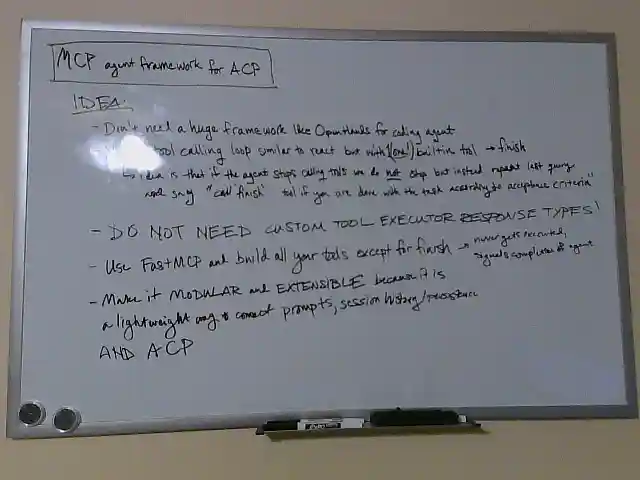 MCP agent framework for ACP
IDEA:
- Don't need a huge framework like OpenHands for coding agent
- tool calling loop similar to react but with (one!) builtin tool → finish
↳ idea is that if the agent stops calling tools we do not stop but instead repeat last query
and say "call 'finish' tool if you are done with the task according to acceptance criteria"
- DO NOT NEED CUSTOM TOOL EXECUTOR RESPONSE TYPES!
- Use FastMCP and build all your tools except for finish → never gets executed,
signals completion of agent
- Make it MODULAR and EXTENSIBLE because it is
a lightweight way to connect prompts, session history/persistence
AND ACP